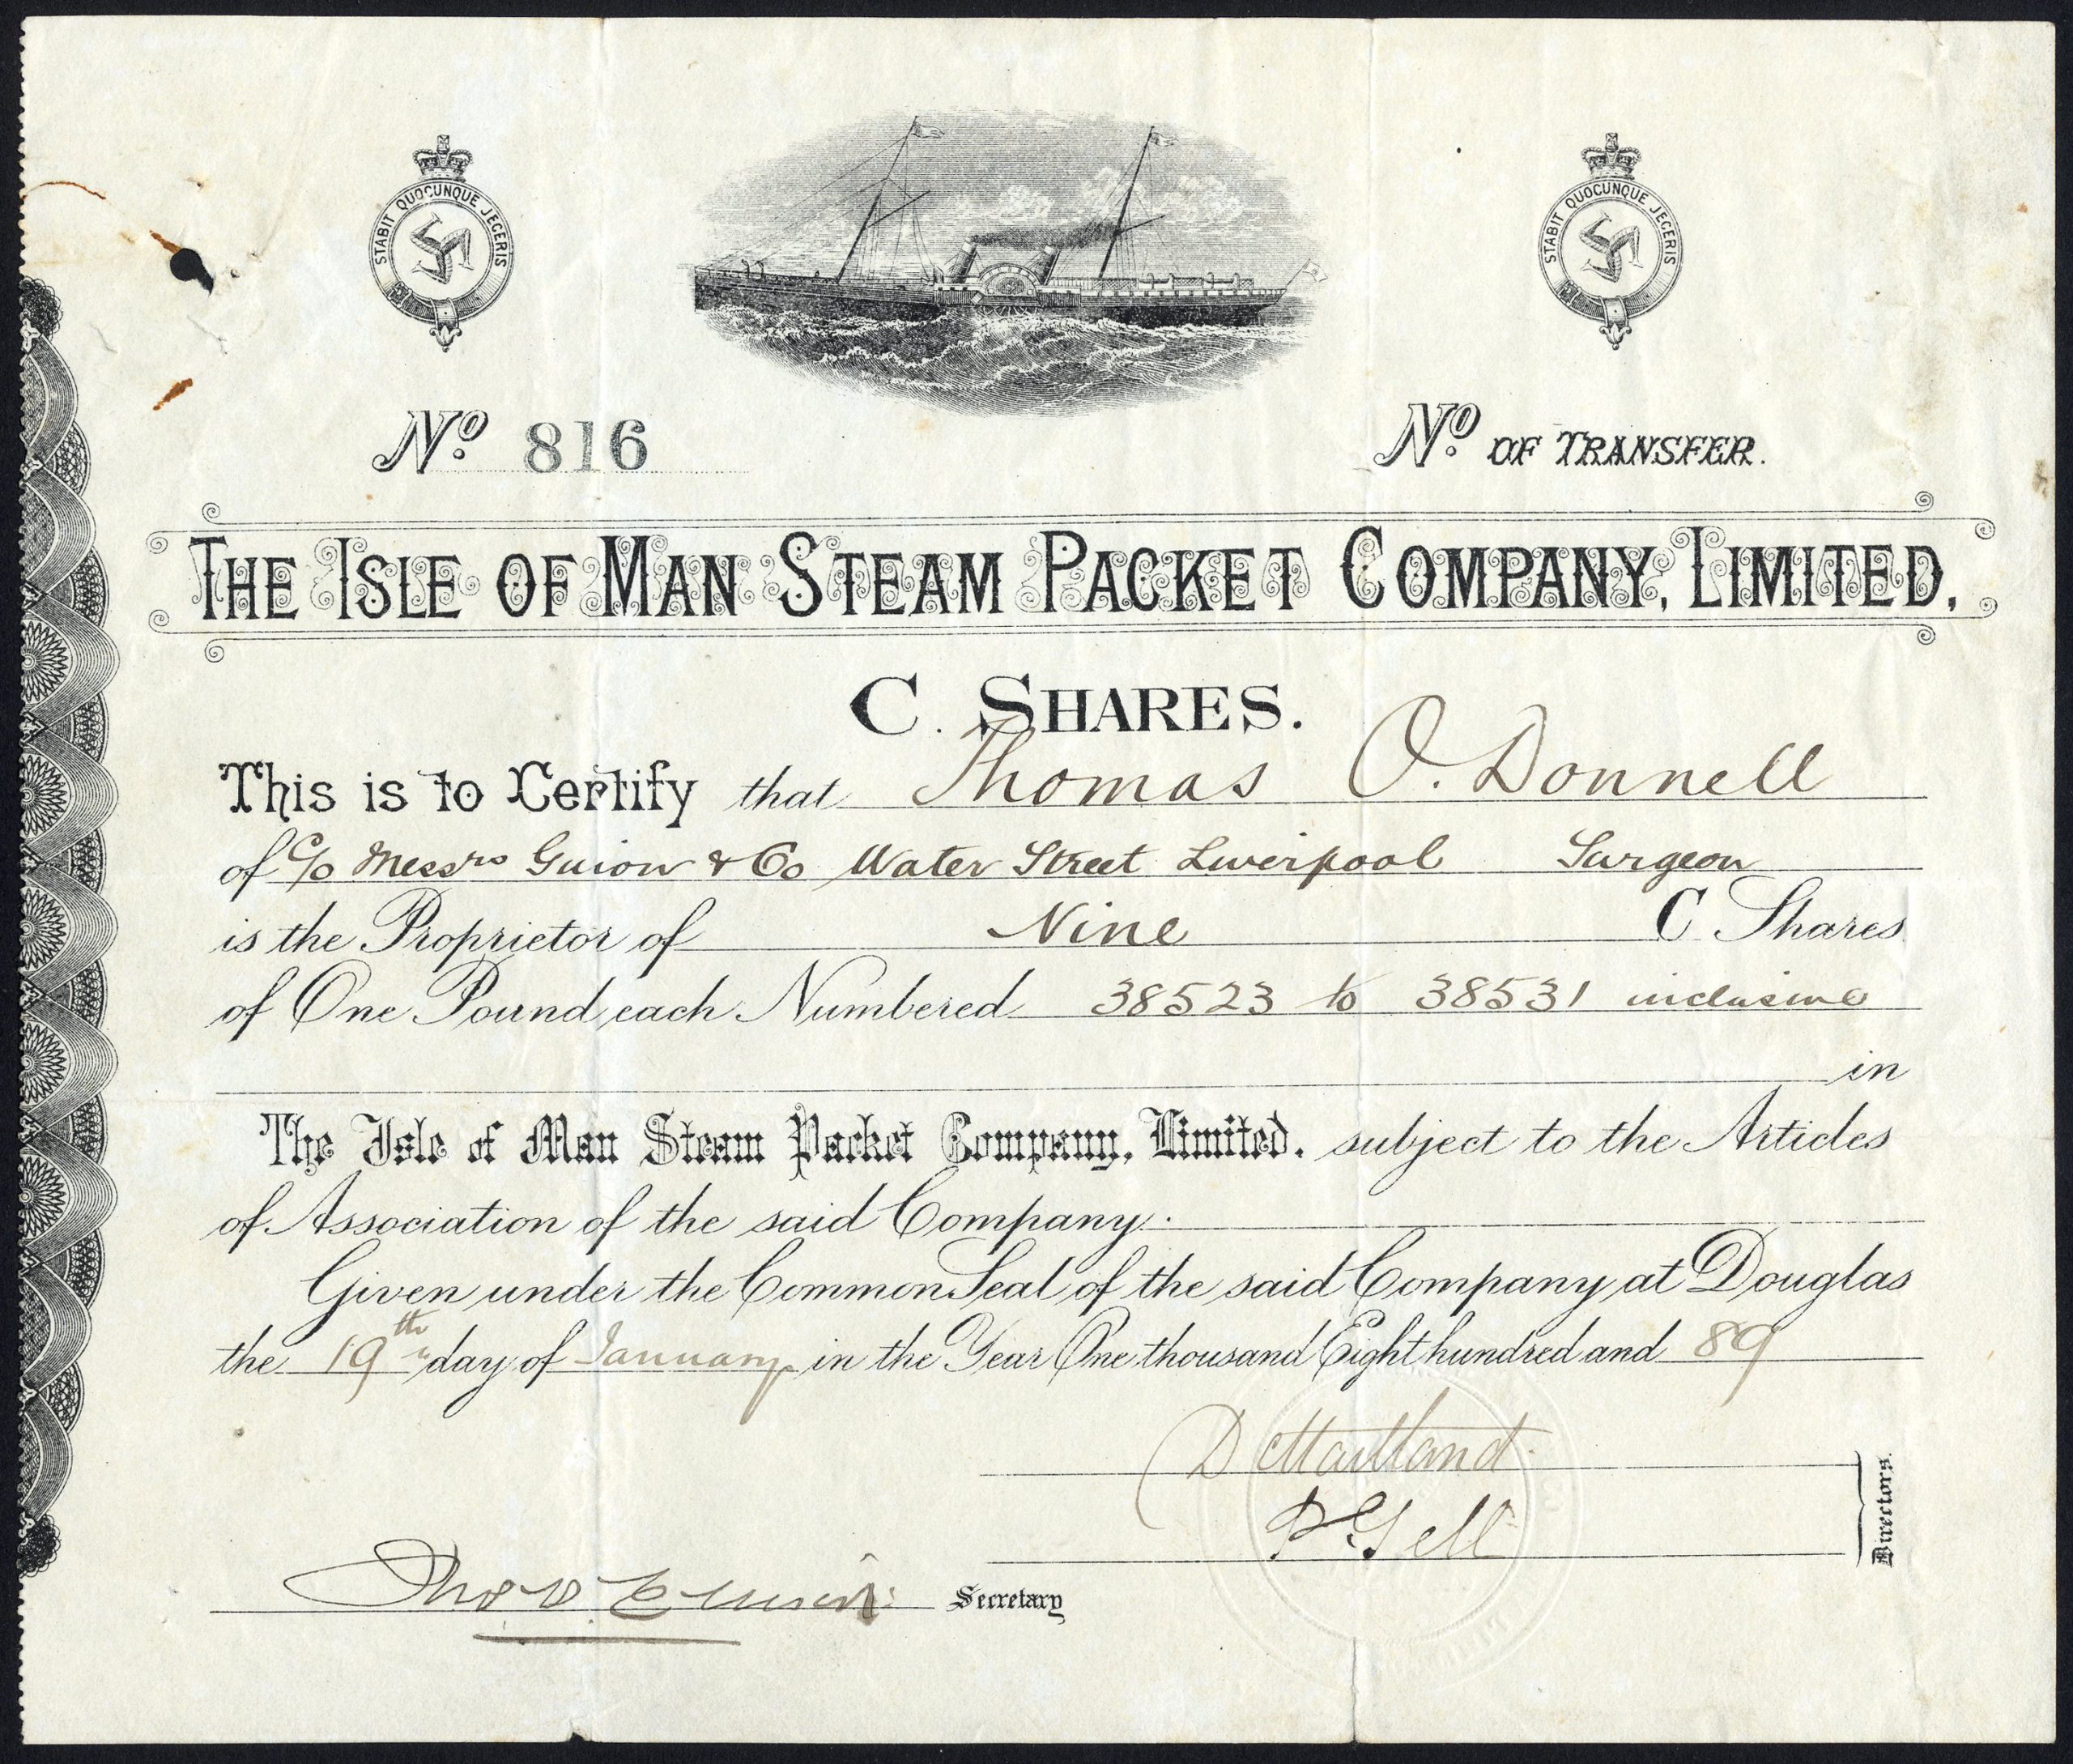 STABIT QUOCUNQUE JECERIS
STABIT QUOCUNQUE JECERIS
No. 816
No. OF TRANSFER.
THE ISLE OF MAN STEAM PACKET COMPANY, LIMITED,
C. SHARES.
This is to Certify that Thomas O. Donnell
of c/o Messrs Guion & Co Water Street Liverpool Surgeon
is the Proprietor of Nine C Shares
of One Pound each Numbered 38523 to 38531 inclusive
in
The Isle of Man Steam Packet Company, Limited. subject to the Articles
of Association of the said Company.
Given under the Common Seal of the said Company at Douglas
the 19th day of January in the Year One thousand Eight hundred and 89
D Maitland
Gell
Directors.
Thos Secretary